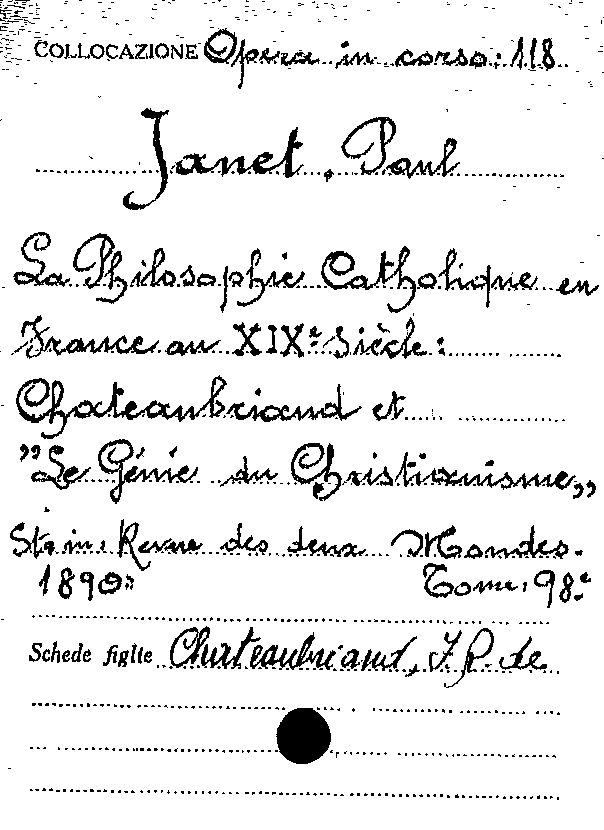 COLLOCAZIONE Opera in corso: 118
Janet, Paul
La Philosophie Catholique en
France au XIXe Siècle:
Chateaubriand et
"Le Génie du Christianisme"
Sta in: Revue des deux Mondes.
1890 Tome 98e
Schede figlie Chateaubriand, F. R. de